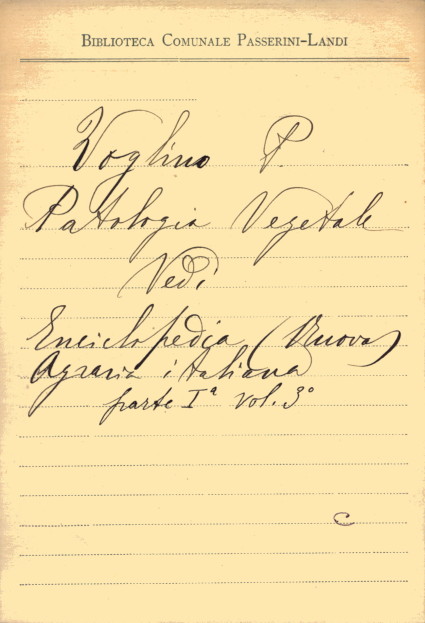 BIBLIOTECA COMUNALE PASSERINI-LANDI
Voglino P.
Patologia Vegetale
Vedi
Enciclopedia (Nuova)
Agraria italiana
parte Iª vol. 3°
C